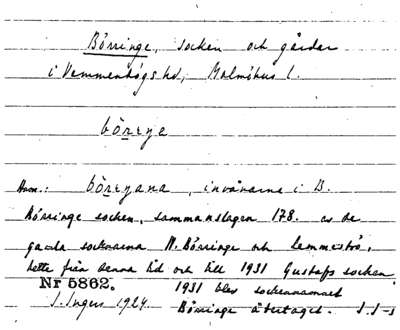 Börringe, socken och gårdar
i Vemmenhögs hd, Malmöhus l.
börrye
Anm.: börryana, invånarna i B.
Börringe socken, sammanslagen 178. av de
gamla socknarna N. Börringe och Lemmeströ,
hette från denna tid och till 1931 Gustafs socken
Nr 5862. 1931 blev sockennamnet
I. Ingers 1924. Börringe återtaget. I. I-s